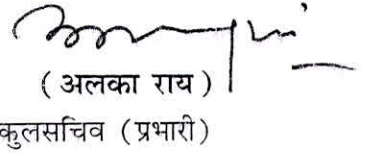 ( अलका राय )
कुलसचिव (प्रभारी)